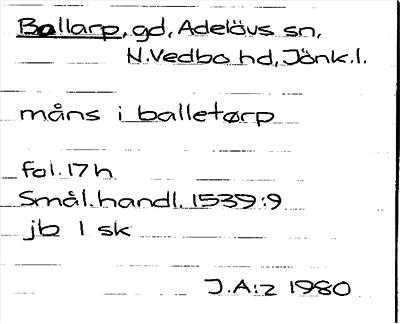 Bollarp, gd, Adelövs sn,
N.Vedbo hd, Jönk.l.
måns i balletørp
fol. 17 h
Smål. handl. 1539:9
jb 1 sk
J.A:z 1980